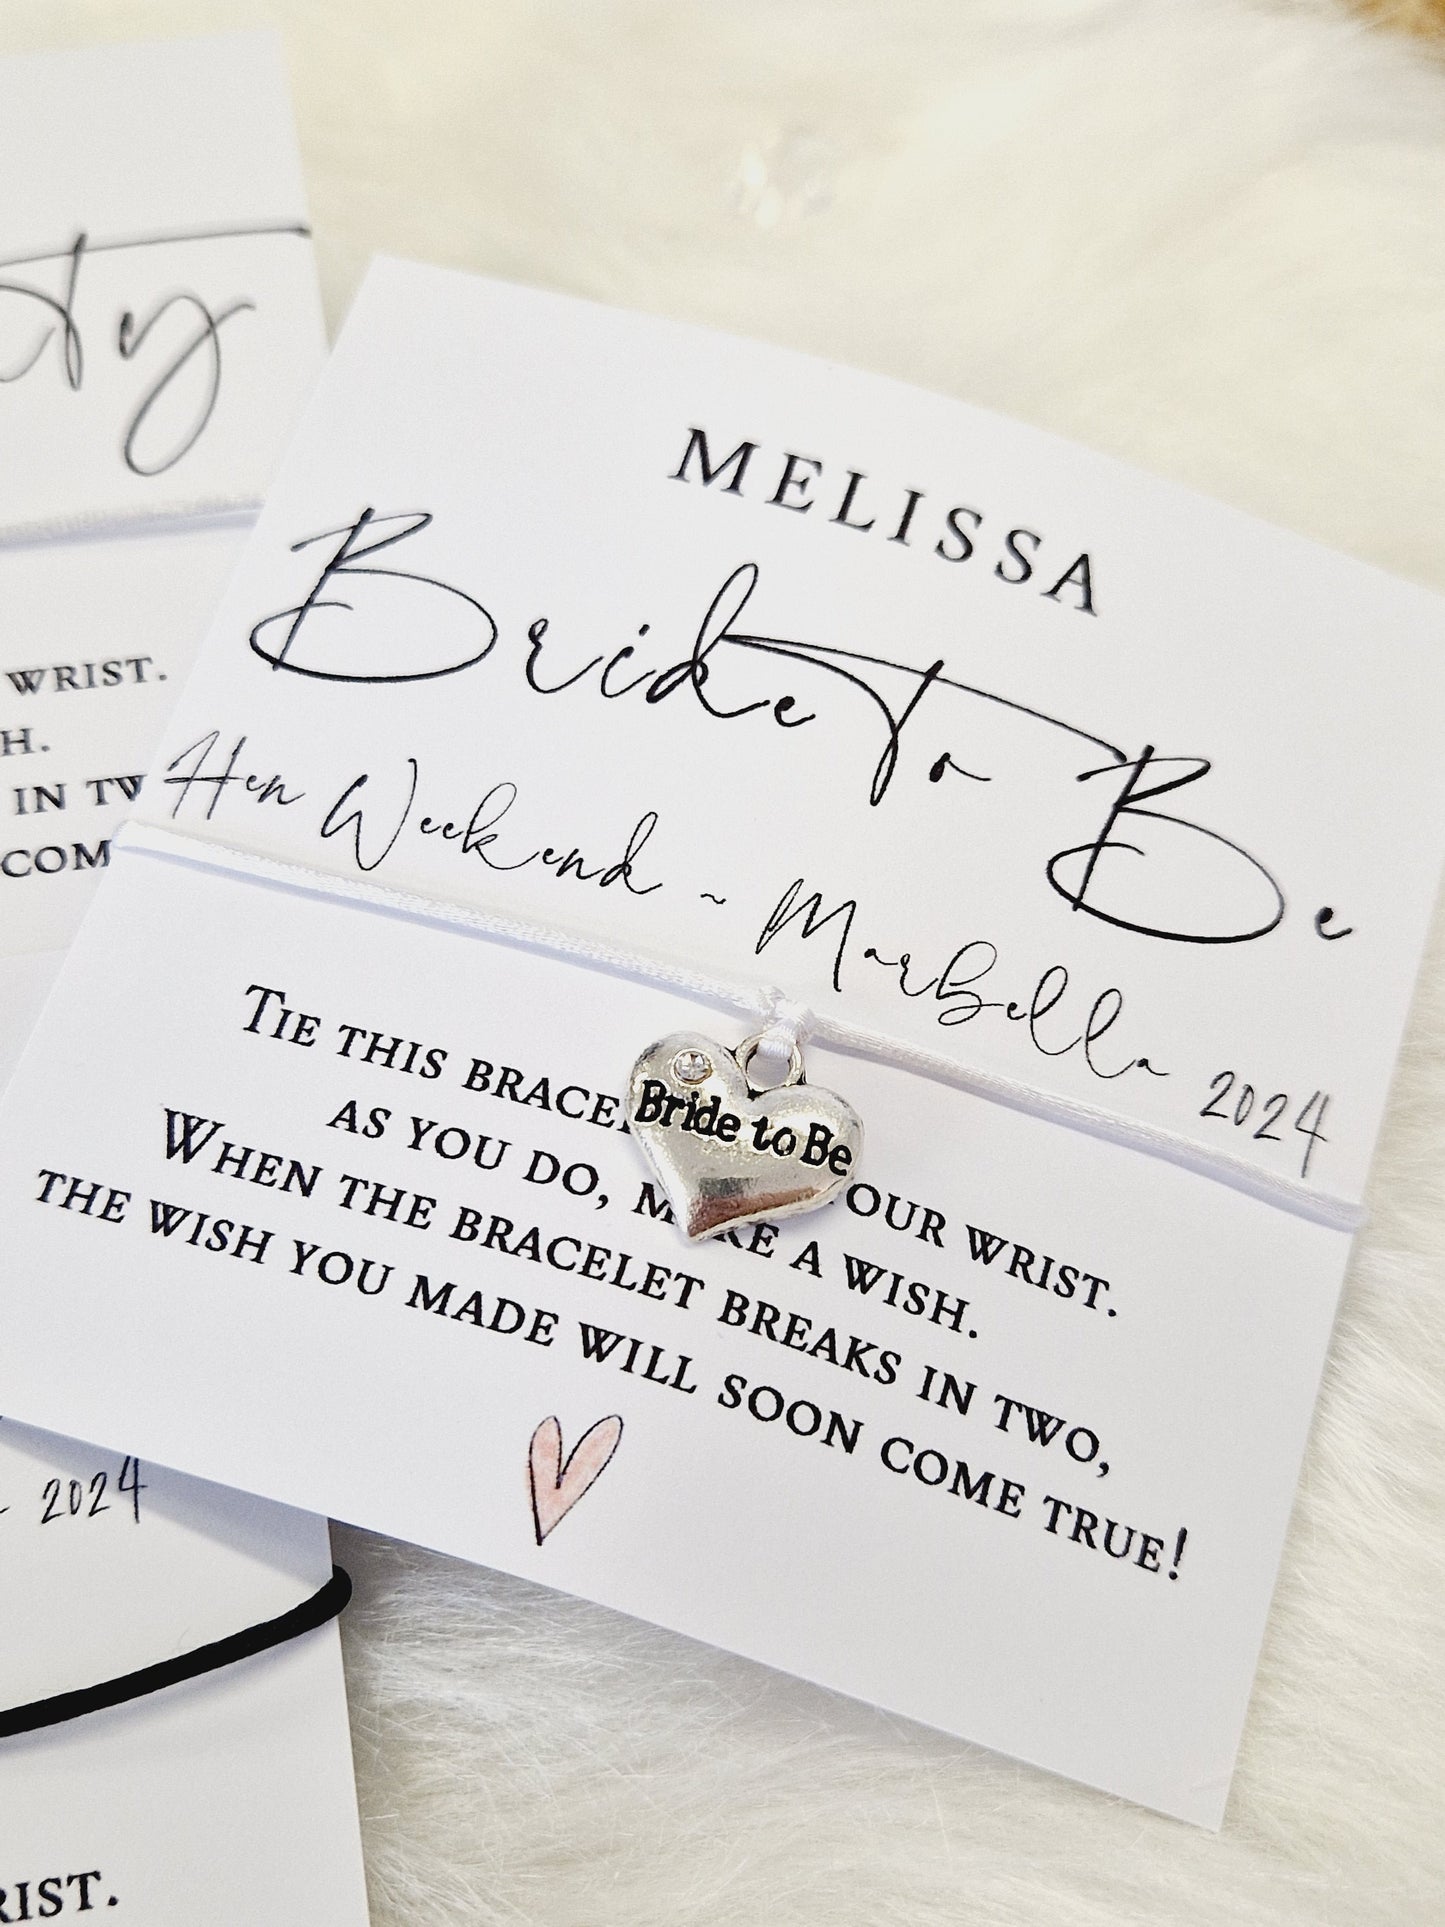 WRIST.
H.
IN TW
COM
MELISSA
Bride To Be
Hen Weekend ~ Marbella 2024
TIE THIS BRACE OUR WRIST.
AS YOU DO, MAKE A WISH.
WHEN THE BRACELET BREAKS IN TWO,
THE WISH YOU MADE WILL SOON COME TRUE!
Bride to Be
2024
RIST.